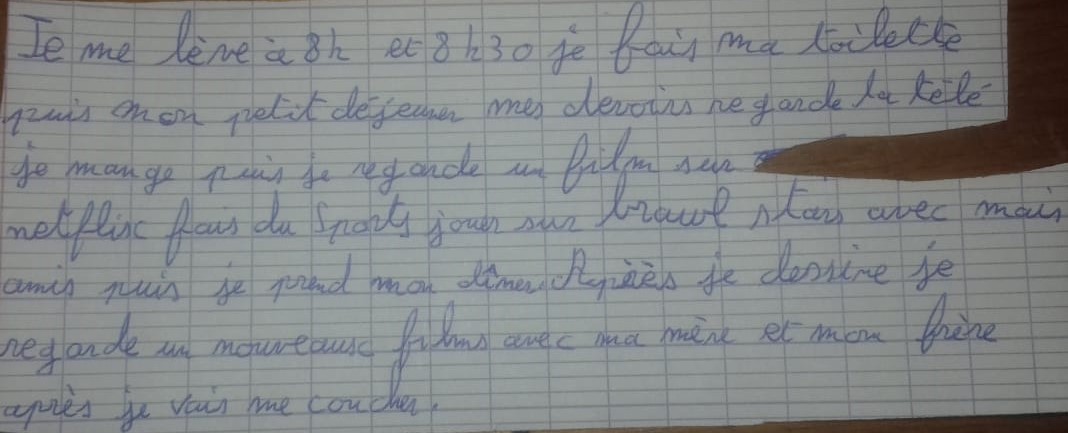 Je me lève à 8h et 8h30 je fais ma toilette
puis mon petit déjeuner mes devoirs regarde la télé
je mange puis je regarde un film sur
netflix fais du Sports jouer sur brawl stars avec mais
amis puis je prend mon dîner. Après je dessine je
regarde un nouveaux films avec ma mère et mon frère
après je vais me coucher.